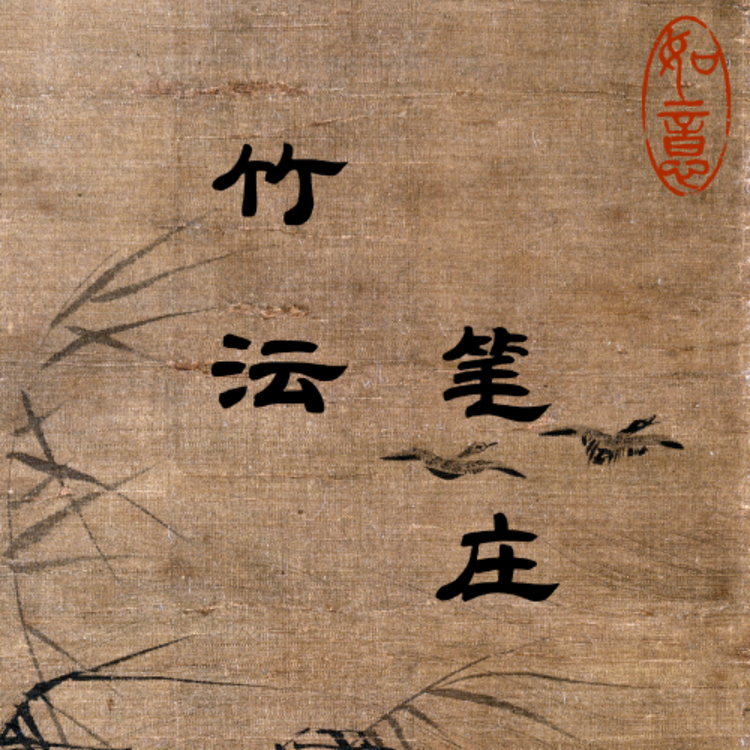 竹沄
笔庄
如意